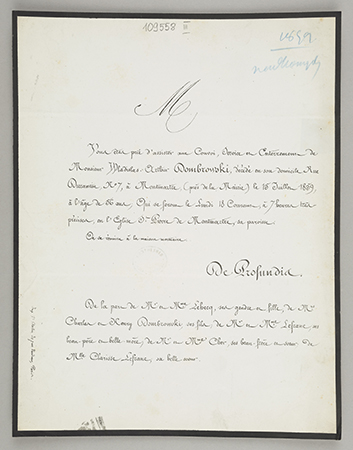 109558 III
M
Vous êtes prié d'assister aux Convoi, Service et Enterrement de
Monsieur Wladislas Arthur Dombrowski, décédé en son domicile Rue
N° 7, à Montmartre, (près de la Mairie) le 16 Juillet 1859
à l'âge de ans; Qui se feront le Lundi 18 Courant, à 7 heures très
précises, en l'Eglise St Pierre de Montmartre, sa paroisse.
On se réunira à la maison mortuaire.
De Profundis.
De la part de Mr et Mme ses gendre et fille, de Mrs
Charles et Dombrowski, ses fils, de Mr et Mme Lefranc, ses
beau-père et belle-mère, de Mr et Mme ses beau-frère et sœur de
Mlle Clarisse Lefranc, sa belle-sœur.